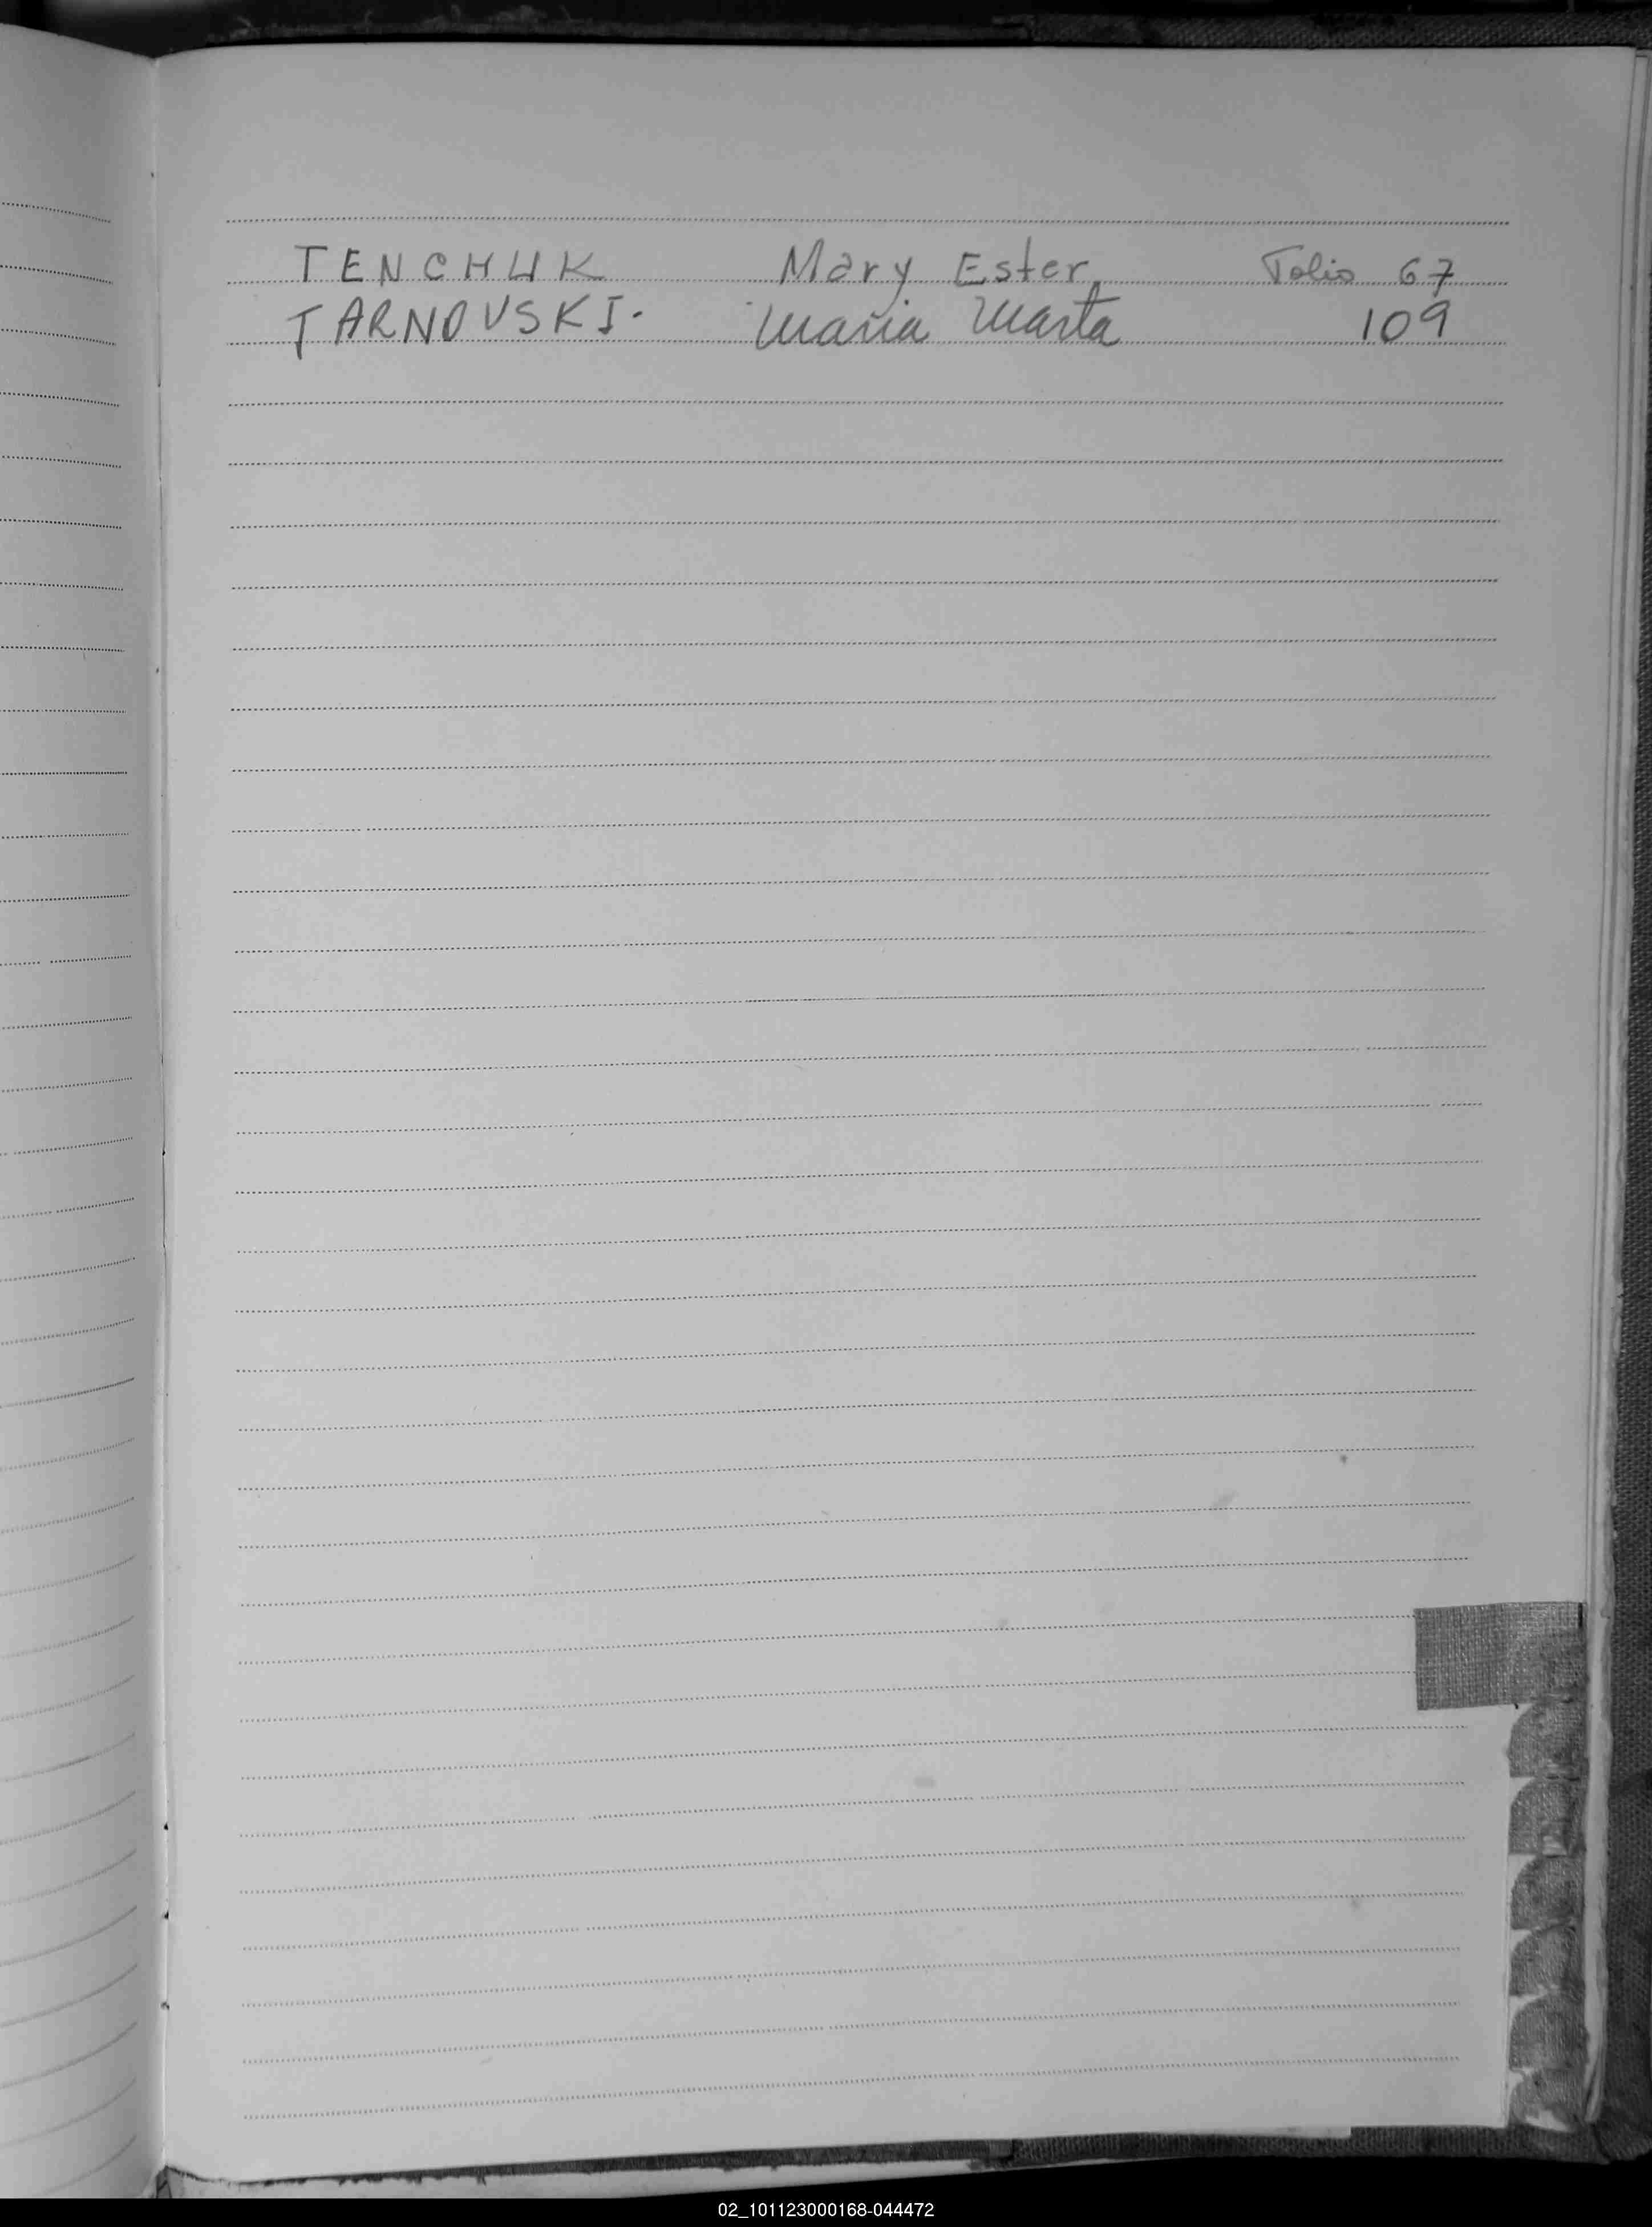 TENCHUK Mary Ester Folio 67
TARNOVSKI. Maria Marta 109
02_101123000168-044472